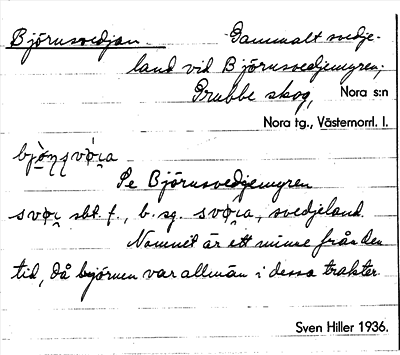 Björnsvedjan. Gammalt svedje-
land vid Björnsvedjemyren;
Grubbe skog, Nora s:n
Nora tg., Västernorrl. l.
Se Björnsvedjemyren
sbt. f., b. sg. svedjeland.
Namnet är ett minne från den
tid, då björnen var allmän i dessa trakter.
Sven Hiller 1936.